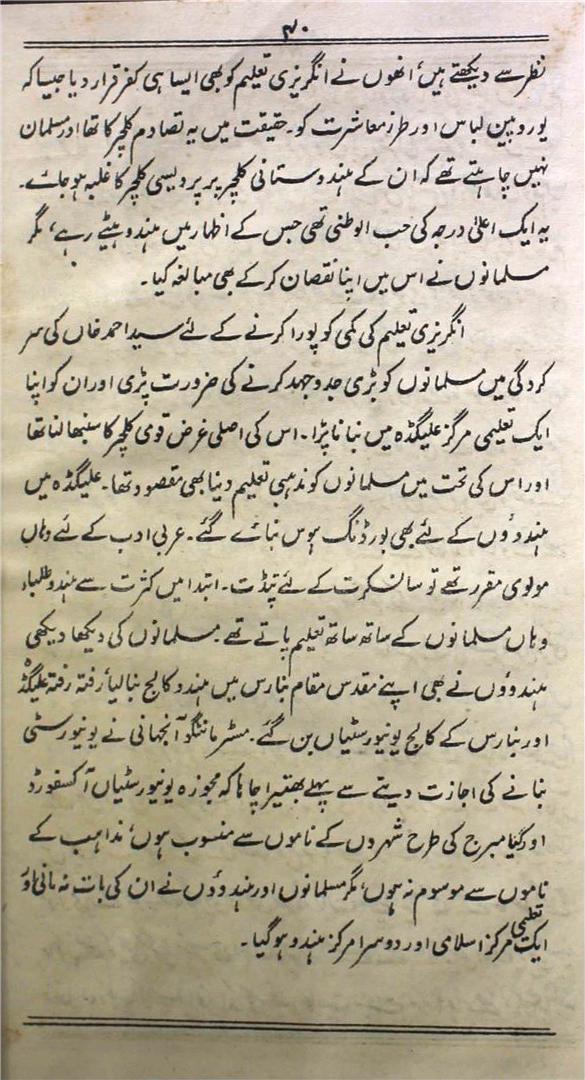 ۴۰
نظر سے دیکھتے ہیں، انھوں نے انگریزی تعلیم کو بھی ایسا ہی کفر قرار دیا جیسا کہ
یوروپین لباس اور طرز معاشرت کو۔ حقیقت میں یہ تصادم کلچر کا تھا اور مسلمان
نہیں چاہتے تھے کہ ان کے ہندوستانی کلچر پر پردیسی کلچر کا غلبہ ہو جائے۔
یہ ایک اعلیٰ درجہ کی حب الوطنی تھی جس کے اظہار میں ہندو ہیٹے رہے، مگر
مسلمانوں نے اس میں اپنا نقصان کر کے بھی مبالغہ کیا۔
انگریزی تعلیم کی کمی کو پورا کرنے کے لئے سید احمد خاں کی سر
کردگی میں مسلمانوں کو بڑی جدوجہد کرنے کی ضرورت پڑی اور ان کو اپنا
ایک تعلیمی مرکز علیگڈہ میں بنانا پڑا۔ اس کی اصلی غرض قومی کلچر کا سنبھالنا تھا
اور اس کی تحت میں مسلمانوں کو مذہبی تعلیم دینا بھی مقصود تھا۔ علیگڈہ میں
ہندوؤں کے لئے بھی بورڈنگ ہوس بنائے گئے۔ عربی ادب کے لئے وہاں
مولوی مقرر تھے تو سانسکرت کے لئے پنڈت۔ ابتدا میں کثرت سے ہندو طلباء
وہاں مسلمانوں کے ساتھ ساتھ تعلیم پاتے تھے۔ مسلمانوں کی دیکھا دیکھی
ہندوؤں نے بھی اپنے مقدس مقام بنارس میں ہندو کالج بنا لیا، رفتہ رفتہ علیگڈہ
اور بنارس کے کالج یونیورسٹیاں بن گئے۔ مسٹر مانٹگو آنجہانی نے یونیورسٹی
بنانے کی اجازت دینے سے پہلے بھتیرا چاہا کہ مجوزہ یونیورسٹیاں آکسفورڈ
اور کیامبرج کی طرح شہروں کے ناموں سے منسوب ہوں، مذاہب کے
ناموں سے موسوم نہ ہوں، مگر مسلمانوں اور ہندوؤں نے ان کی بات نہ مانی اور
ایک تعلیمی مرکز اسلامی اور دوسرا مرکز ہندو ہو گیا۔